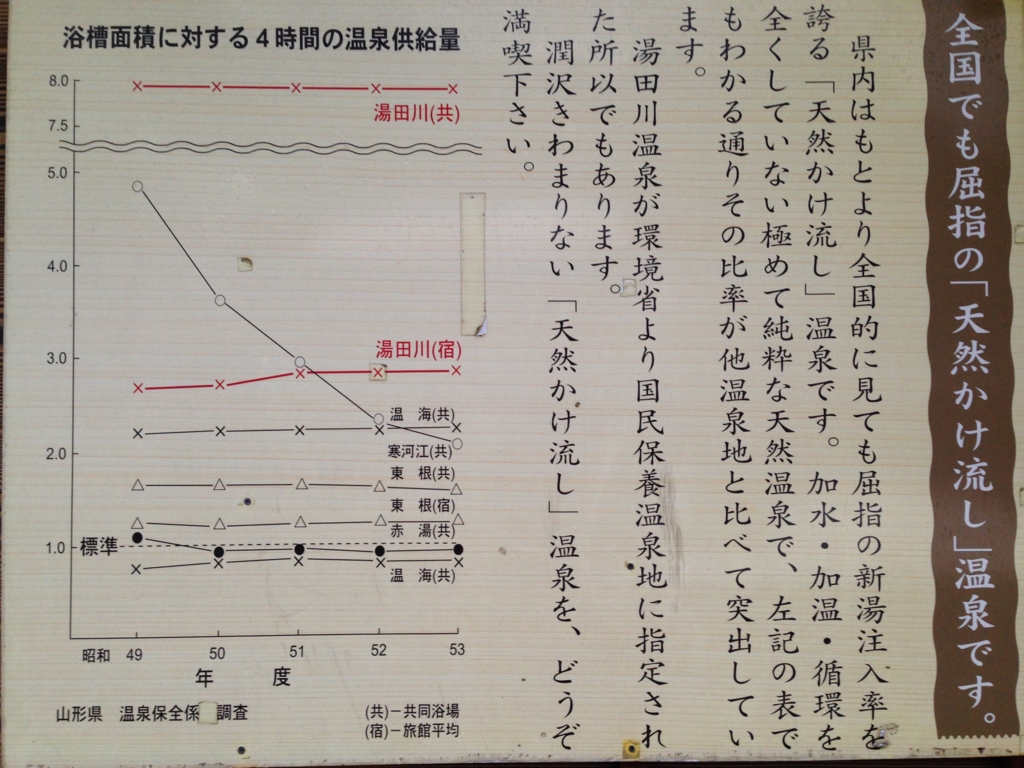 全国でも屈指の「天然かけ流し」温泉です。
県内はもとより全国的に見ても屈指の新湯注入率を
誇る「天然かけ流し」温泉です。加水・加温・循環を
全くしていない極めて純粋な天然温泉で、左記の表で
もわかる通りその比率が他温泉地と比べて突出してい
ます。
湯田川温泉が環境省より国民保養温泉地に指定され
た所以でもあります。
潤沢きわまりない「天然かけ流し」温泉を、どうぞ
満喫下さい。
浴槽面積に対する4時間の温泉供給量
8.0
湯田川(共)
7.5
5.0
4.0
3.0
湯田川(宿)
温 海(共)
寒河江(共)
2.0
東 根(共)
東 根(宿)
赤 湯(共)
1.0
標準
温 海(共)
昭和 49 50 51 52 53
年 度
山形県 温泉保全係 調査
(共)−共同浴場
(宿)−旅館平均